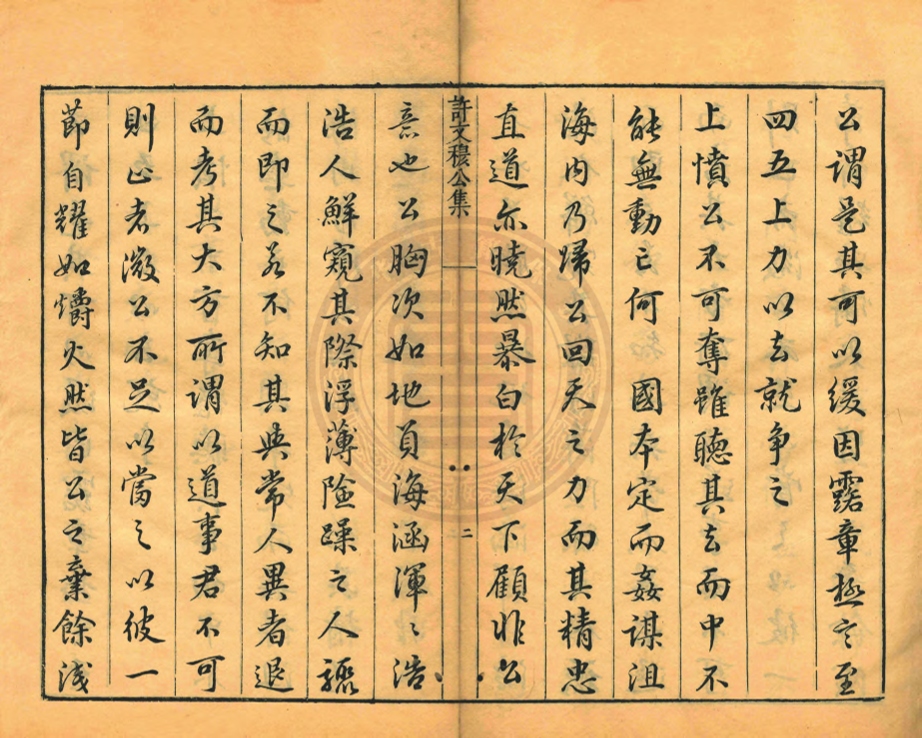 公謂是其可以緩因露章極言至
四五上力以去就争之
上憤公不可奪雖聽其去而中不
能無動亡何國本定而姦謀沮
海内乃歸公回天之力而其精忠
直道亦曉然暴白於天下顧非公
許文穆公集
二
意也公胸次如地負海涵渾〻浩
浩人鮮窺其際浮薄險躁之人驟
而即之若不知其與常人異者退
而考其大方所謂以道事君不可
則止者微公不足以當之以彼一
節自耀如爝火然皆公之棄餘淺